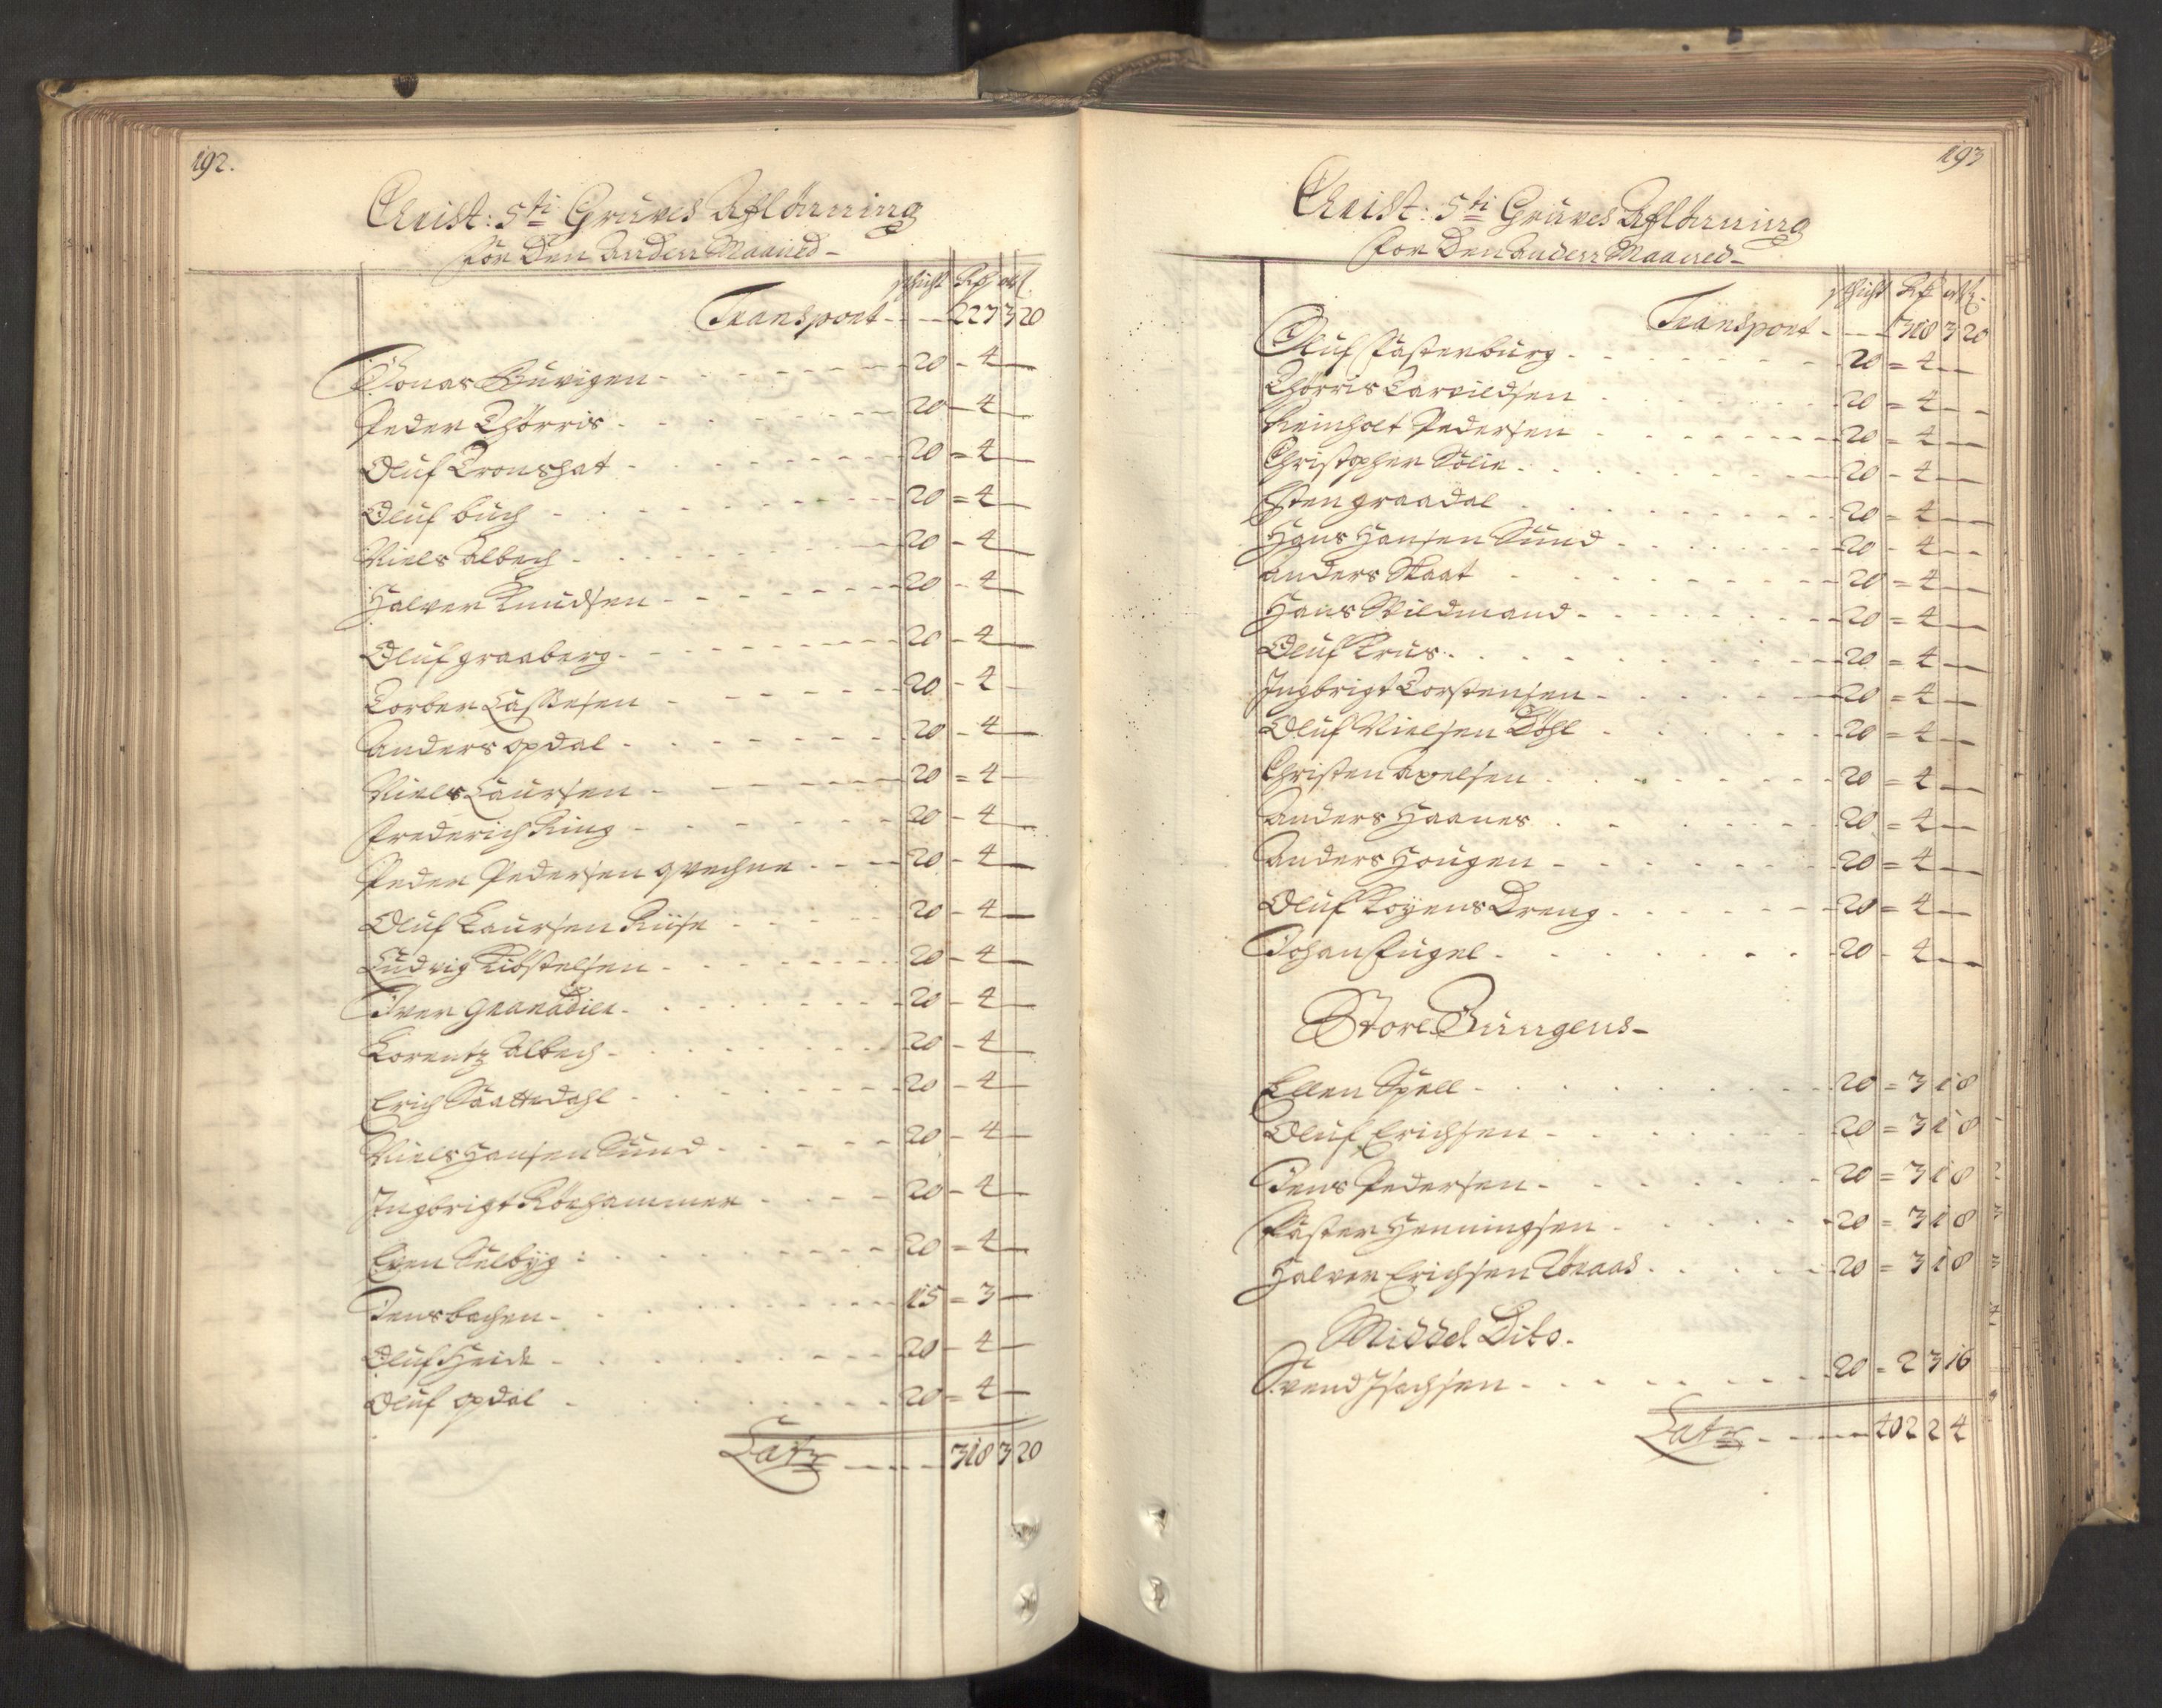 192.
Christ: 5ti Gruves Aflønning
for Den Anden Maaned-
schicht Rd ort s
Transport - - - 227 3 20
Jonas Buvigen - - - 20 - 4 -
Peder Thorris - - - 20 - 4 -
Oluf Tronshat - - - 20 = 4 -
Oluf buch - - - 20 = 4 -
Niels Albech - - - 20 - 4 -
Halver Knudsen - - - 20 - 4 -
Oluf graaberg - - - 20 - 4 -
Torber - - - 20 - 4 -
Anders opdal - - - 20 - 4 -
Niels Laursen - - - 20 = 4 -
Frederich Ring - - - 20 - 4 -
Peder Pedersen qvechne - - - 20 - 4 -
Oluf Laursen Riise - - - 20 - 4 -
Ludvig - - - 20 - 4 -
Iver Granadier - - - 20 - 4 -
Lorentz Albech - - - 20 - 4 -
Erich - - - 20 - 4 -
Niels Hansen Sund - - - 20 - 4 -
Ingbrigt Rørhammer - - - 20 - 4 -
Even Sælbyg : - - - 20 = 4 -
Jens bachen - - - 15 = 3 -
Oluf Heide - - - 20 - 4 -
Oluf opdal - - - 20 = 4 -
Latr - - - 318 3 20
193
Christ: 5ti Gruves Aflønning
for Den Anden Maaned-
schicht Rd ort s
Transport - - - 318 3 20
Oluf Pasterburg - - - 20 = 4 -
Thorris Tarvildsen - - - 20 = 4 -
Reinholt Pedersen - - - 20 = 4 -
Christopher Sølie - - - 20 - 4 -
Esten graadal - - - 20 = 4 -
Hans Hansen Sund - - - 20 - 4 -
Anders Skaat - - - 20 = 4 -
Hans Vildmand - - - 20 = 4 -
Oluf Krus - - - 20 = 4 -
Ingbrigt Torstensen - - - 20 = 4 -
Oluf Nielsen Døhl - - - 20 = 4 -
Christen Axelsen - - - 20 = 4 -
Anders Haanes - - - 20 = 4 -
Anders Hougen - - - 20 = 4 -
Oluf Koyens Dreng - - - 20 = 4 -
Johan Fugel - - - 20 - 4 -
Store Jungens-
Ellen Spell - - - 20 = 3 1 8
Oluf Erichsen - - - 20 = 3 1 8
Jens Pedersen - - - 20 = 3 1 8
Paster Henningsen - - - 20 = 3 1 8
Halver Erichsen Røraas - - - 20 = 3 1 8
Middel Dito.
Svend Isachsen - - - 20 = 2 3 16
Latr - - - 402 2 4